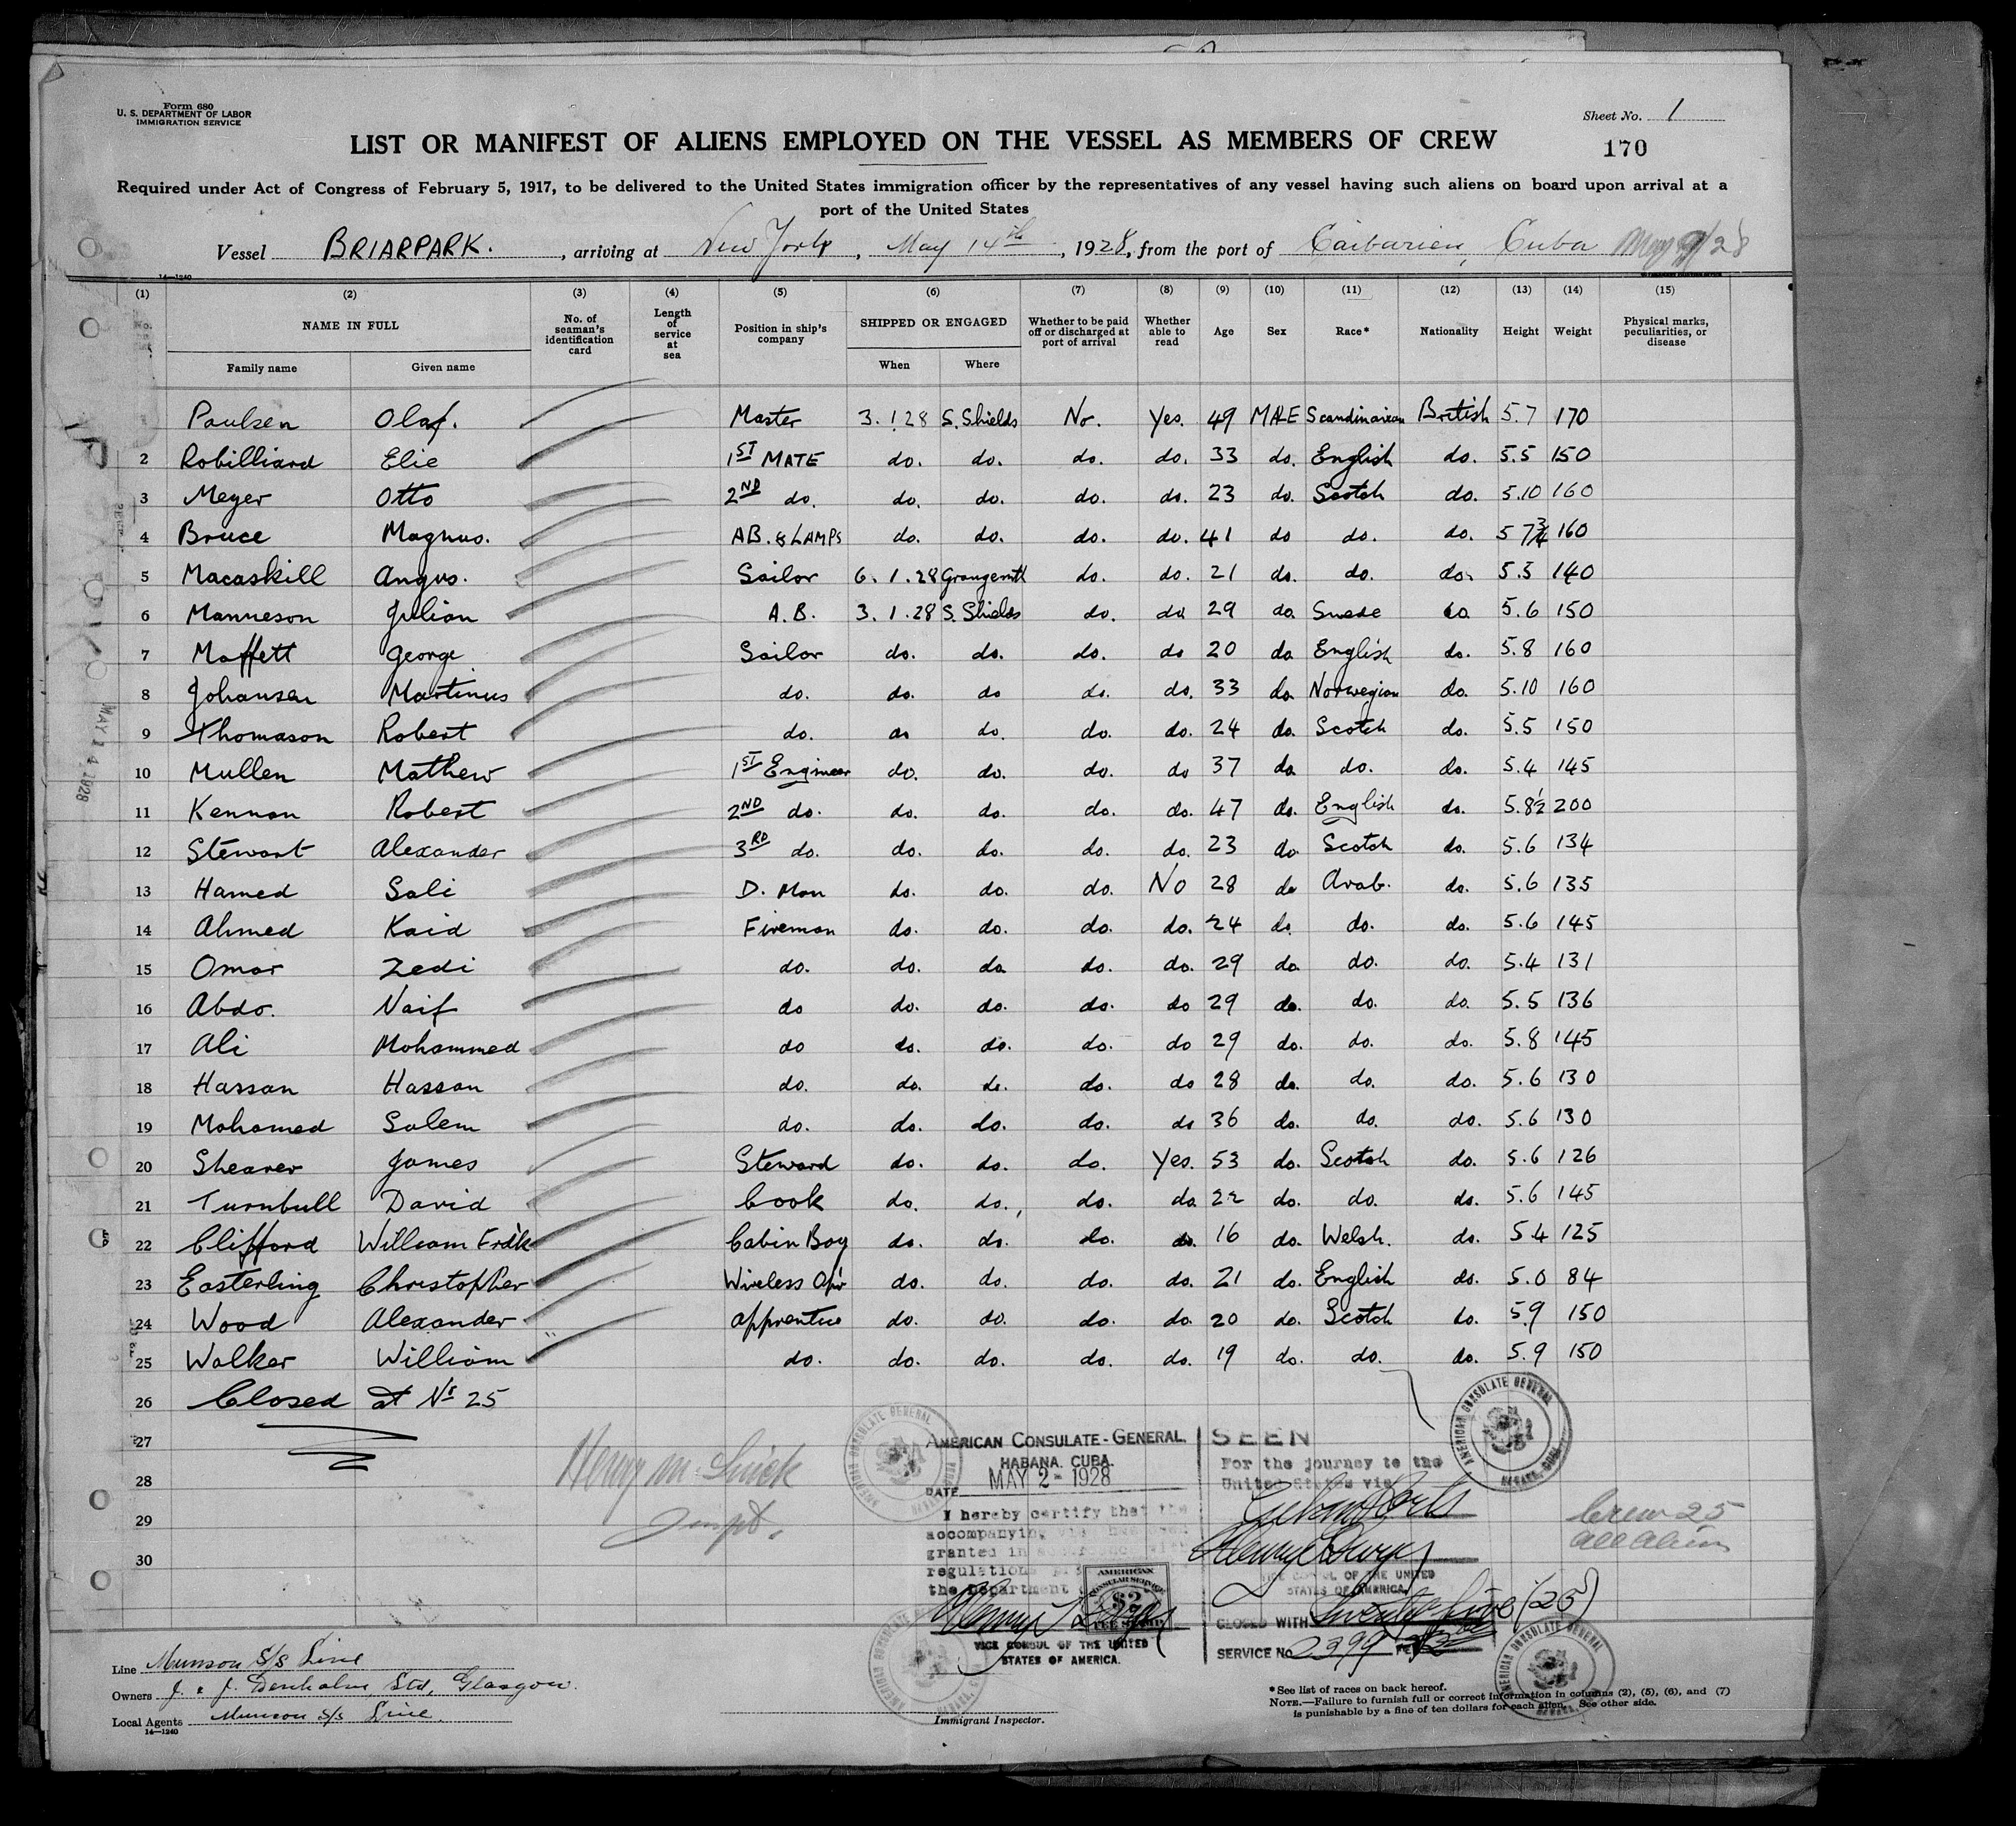 Form 680
U. S. DEPARTMENT OF LABOR
IMMIGRATION SERVICE
Sheet No. 1
170
LIST OR MANIFEST OF ALIENS EMPLOYED ON THE VESSEL AS MEMBERS OF CREW
Required under Act of Congress of February 5, 1917, to be delivered to the United States immigration officer by the representatives of any vessel having such aliens on board upon arrival at a
port of the United States
Vessel BRIARPARK. , arriving at New York , May 14th , 1928, from the port of Caibarien, Cuba May 9/28
14—1240
(1) (2) (3) (4) (5) (6) (7) (8) (9) (10) (11) (12) (13) (14) (15)
No. NAME IN FULL No. of seaman's identification card Length of service at sea Position in ship's company SHIPPED OR ENGAGED Whether to be paid off or discharged at port of arrival Whether able to read Age Sex Race* Nationality Height Weight Physical marks, peculiarities, or disease
Family name Given name When Where
Paulsen Olaf. Master 3.1.28 S. Shields No. Yes. 49 MALE Scandinavian British 5.7 170
2 Robilliard Elie 1ST MATE do. do. do. do. 33 do. English do. 5.5 150
3 Meyer Otto 2ND do. do. do. do. do. 23 do. Scotch do. 5.10 160
4 Bruce Magnus. AB. & LAMPS do. do. do. do. 41 do do. do. 5 7¾ 160
5 Macaskill Angus. Sailor 6.1.28 Grangemth do. do. 21 do. do. do. 5.5 140
6 Manneson Julian A.B. 3.1.28 S. Shields do. do 29 do. Swede do 5.6 150
7 Moffett George Sailor do. do. do. do 20 do English do. 5.8 160
8 Johansen Martinus do. do. do do. do. 33 do. Norwegian do. 5.10 160
9 Thomason Robert do. do do. do. do. 24 do. Scotch do. 5.5 150
10 Mullen Mathew 1ST Engineer do. do. do. do 37 do do. do. 5.4 145
11 Kennon Robert 2ND do. do. do. do. do. 47 do. English do. 5.8½ 200
12 Stewart Alexander 3RD do. do. do. do. do. 23 do Scotch do. 5.6 134
13 Hamed Sali D. Man do. do. do. No 28 do Arab. do. 5.6 135
14 Ahmed Kaid Fireman do. do. do. do. 24 do. do. do. 5.6 145
15 Omar Zedi do. do. do do. do. 29 do. do. do. 5.4 131
16 Abdo. Naif do do. do. do. do 29 do. do. do. 5.5 136
17 Ali Mohammed do do. do. do. do 29 do. do. do. 5.8 145
18 Hassan Hassan do. do. do. do. do 28 do. do. do. 5.6 130
19 Mohamed Salem do. do. do. do. do 36 do. do. do. 5.6 130
20 Shearer James Steward do. do. do. Yes. 53 do. Scotch do. 5.6 126
21 Turnbull David Cook do. do., do. do. 22 do. do. do. 5.6 145
22 Clifford William Frd'k Cabin Boy do. do. do. do. 16 do. Welsh. do. 5 4 125
23 Easterling Christopher Wireless Op'r do. do. do. do. 21 do. English do. 5.0 84
24 Wood Alexander apprentice do. do. do. do. 20 do. Scotch do. 5.9 150
25 Walker William do. do. do. do. do. 19 do. do. do. 5.9 150
26 Closed at No 25
27
28
29
30
AMERICAN CONSULATE-GENERAL.
HABANA. CUBA.
DATE MAY 2- 1928
I hereby certify that the
accompanying visa has been
granted in accordance with
regulations
the Department
AMERICAN CONSULAR SERVICE
$2
FEE STAMP
VICE CONSUL OF THE UNITED
STATES OF AMERICA.
SEEN
For the journey to the
United States via
VICE CONSUL OF THE UNITED
STATES OF AMERICA.
CLOSED WITH Twenty five (25)
SERVICE No 2399
AMERICAN CONSULATE GENERAL
HABANA, CUBA
Crew 25
all Alien
MAY 14 1928
Line Munson S/S Line
Owners J. & J. Denholm, Ltd, Glasgow.
Local Agents Munson S/S Line.
14—1240
Immigrant Inspector.
*See list of races on back hereof.
NOTE.—Failure to furnish full or correct information in columns (2), (5), (6), and (7)
is punishable by a fine of ten dollars for each alien. See other side.